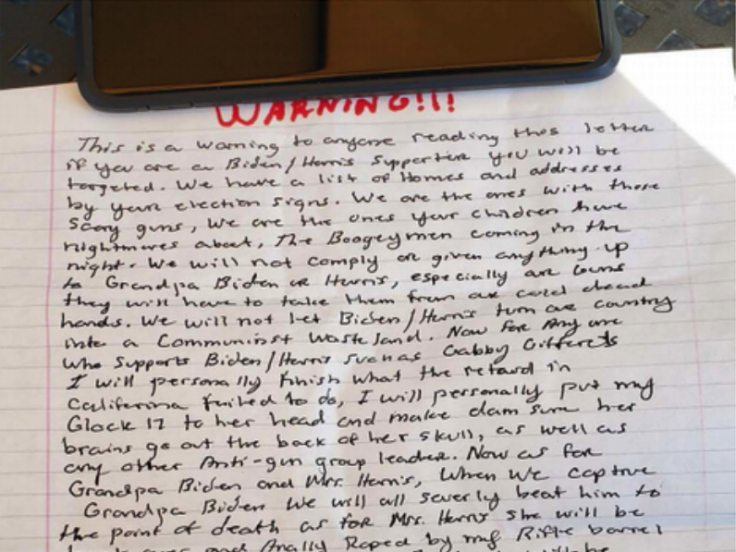 WARNING!!!
This is a warning to anyone reading this letter
if you are a Biden/Harris supporter you will be
targeted. We have a list of Homes and addresses
by your election signs. We are the ones with those
scary guns, We are the ones your children have
nightmares about, The Boogeymen coming in the
night. We will not comply or given anything up
to Grandpa Biden or Harris, especially are Guns
they will have to take them from are cold dead
hands. We will not let Biden/Harris turn are country
into a Communist Waste land. Now for Any one
who supports Biden/Harris such as Gabby Giffords
I will personally finish what the retard in
California failed to do, I will personally put my
Glock 17 to her head and make dam sure her
brains go out the back of her skull, as well as
any other Anti-gun group leader. Now as for
Grandpa Biden and Mrs. Harris, When We captive
Grandpa Biden We will all severly beat him to
the point of death as for Mrs. Harris she will be
and Anally Raped by my Rifle barrel